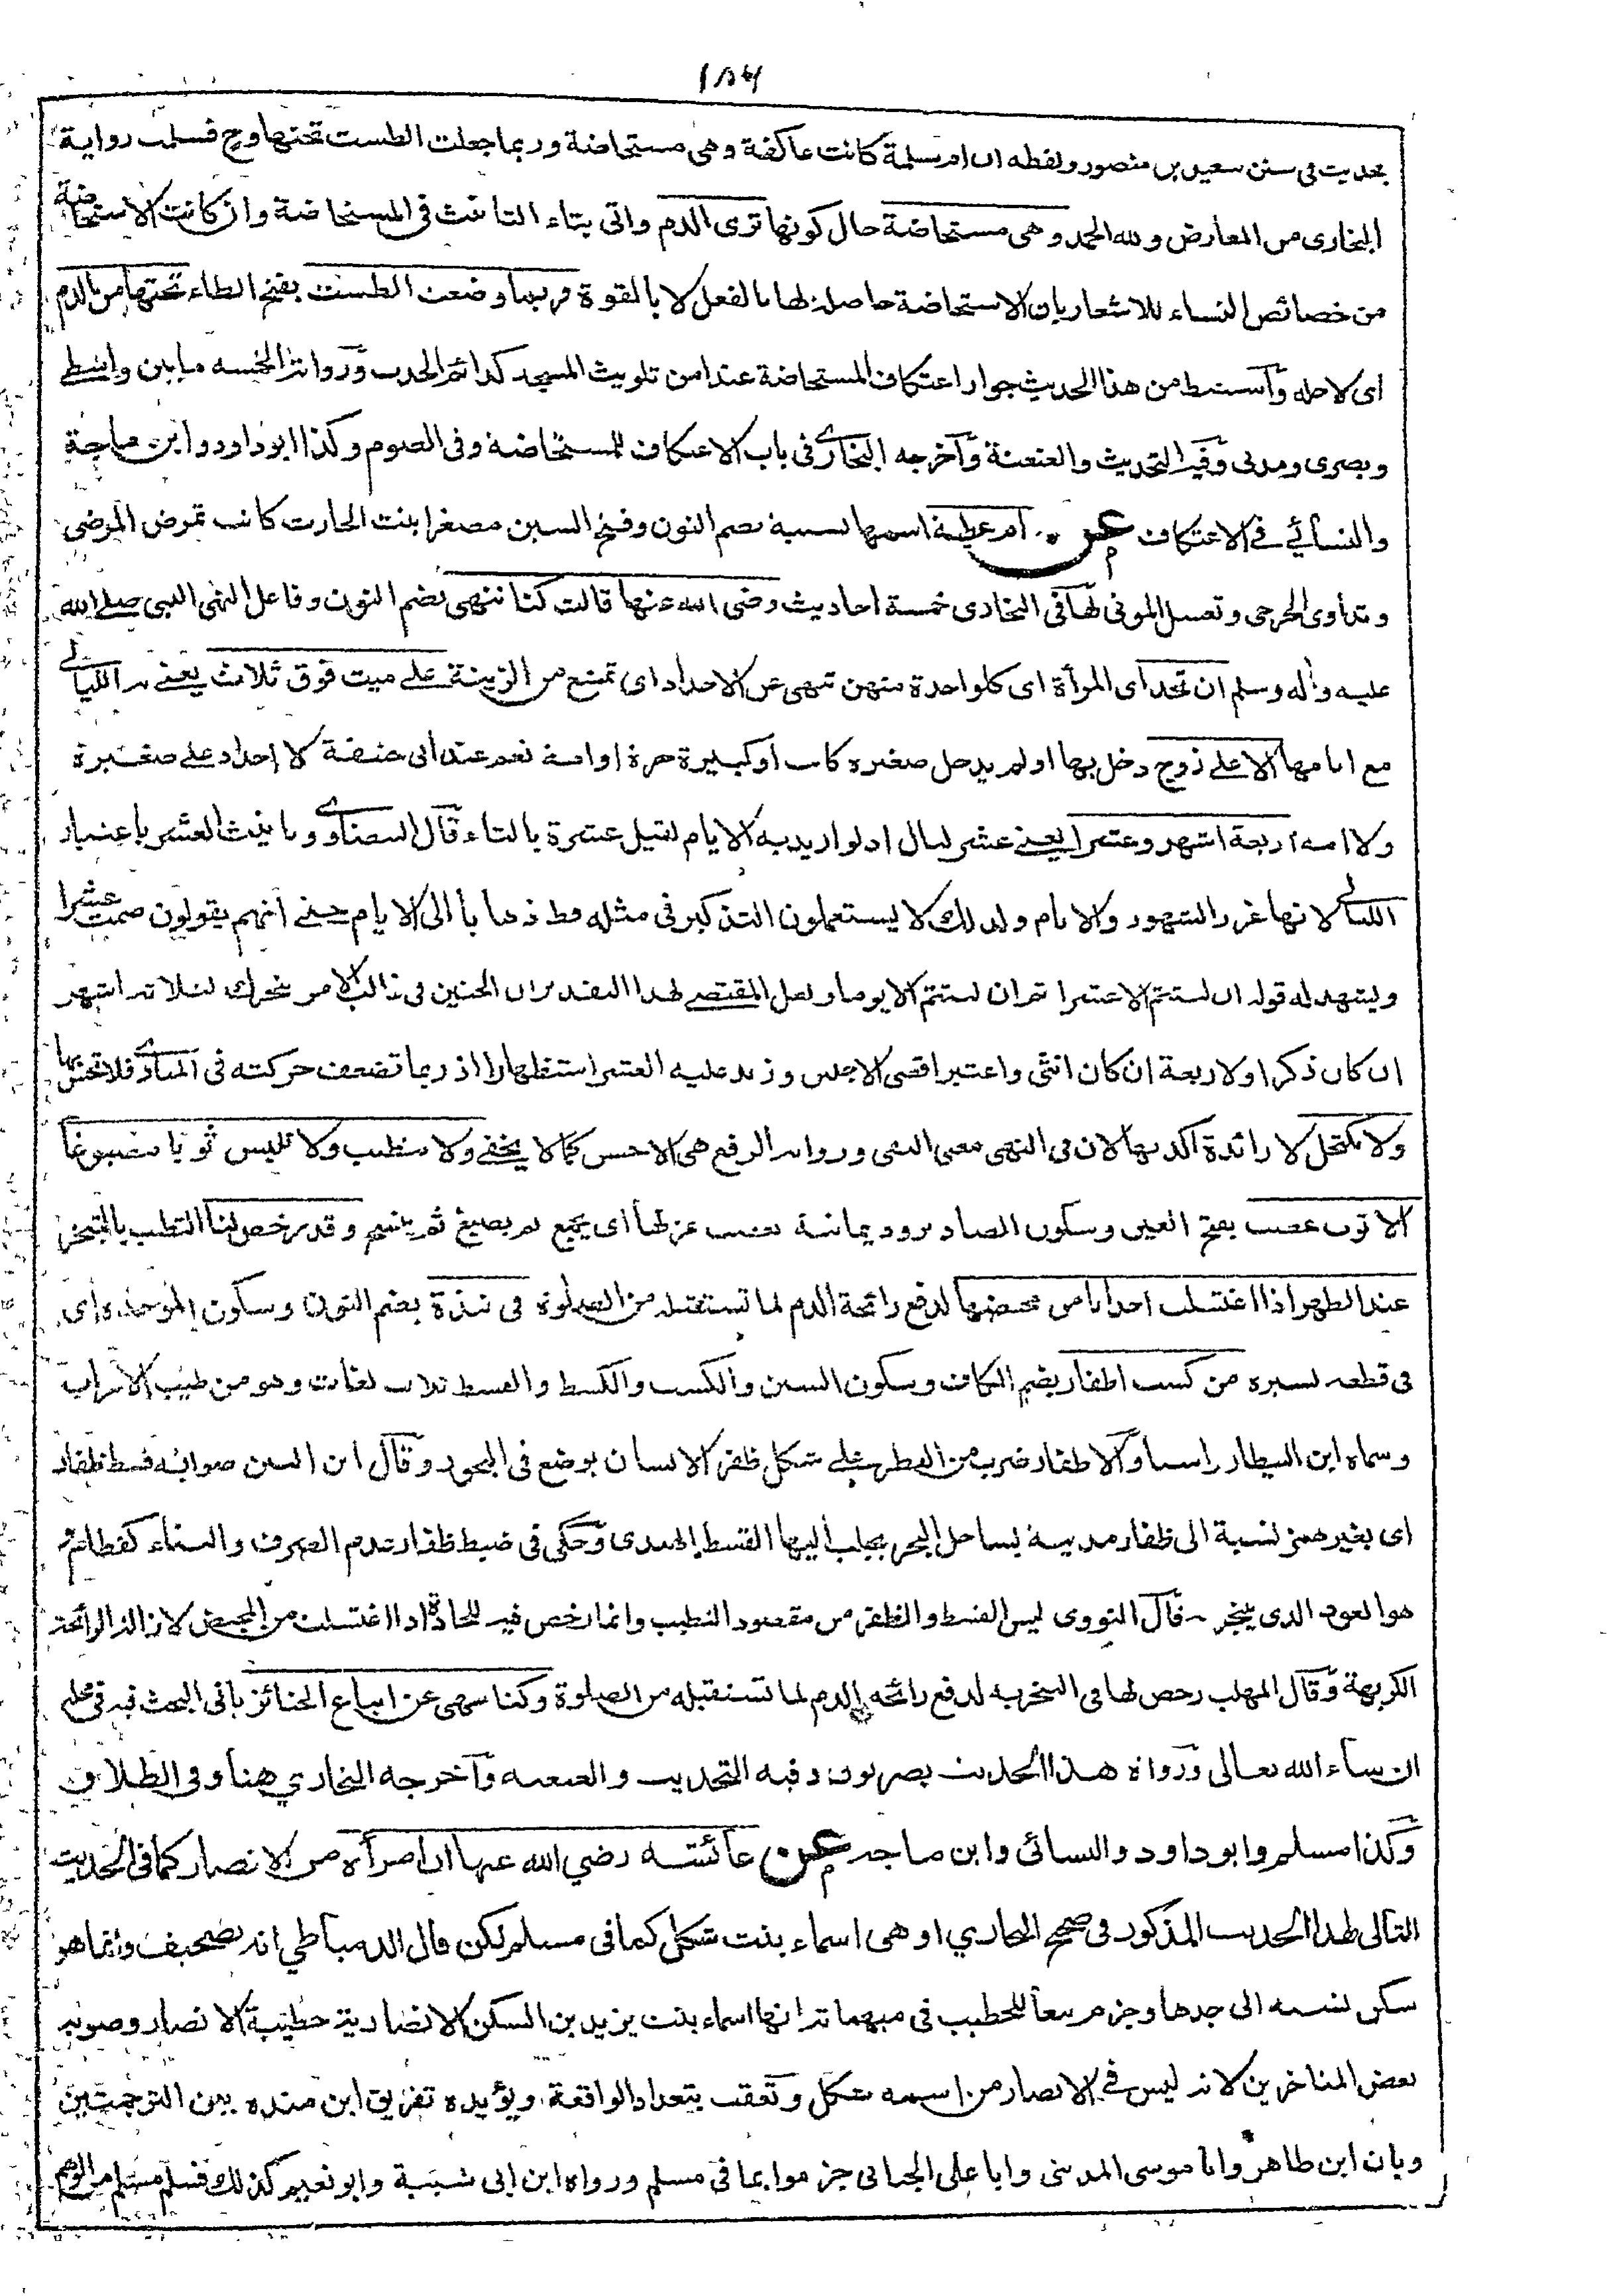 ١٥٦
بحديث في سنن سعيد بن منصور ولفظه ان ام سلمة كانت عاكفة وهي مستحاضة وربما جعلت الطست تحتها وح فسلمت رواية
البخاري من المعارض ولله الحمد وهي مستحاضة حال كونها ترى الدم واتى بتاء التانيث في المستحاضة وان كانت الاستحاضة
من خصائص النساء للاشعار بان الاستحاضة حاصلة لها بالفعل لا بالقوة فربما وضعت الطست بفتح الطاء تحتها من الدم
اى لاجله وآستنبط من هذا الحديث جواز اعتكاف المستحاضة عند امن تلويث المسجد كدائم الحدث وَرواته الخمسه ما بين واسطي
وبصرى ومدني وَفيه التحديث والعنعنة وَآخرجه البخاري في باب الاعتكاف للمستحاضة وفى الصوم وكذا ابو داود وابن ماجة
والنسائي في الاعتكاف عن ام عطية اسمها نسيبة بضم النون وفتح السين مصغرا بنت الحارث كانت تمرض المرضى
وتداوى الجرحى وتغسل الموتى لها فى البخارى خمسة احاديث رضى الله عنها قالت كنا ننهى بضم النون وفاعل النهى النبى صلے الله
عليه وآله وسلم ان تحد اى المرأة اى كل واحدة منهن تنهى عن الاحداد اى تمنع من الزينة علے ميت فوق ثلاث يعنے به الليالے
مع ايامها الا علے زوج دخل بها او لم يدخل صغيره كانت او كبيرة حرة او امة نعم عند ابى حنيفة لا احداد علے صغيرة
ولا امه اربعة اشهر وعشرا يعنے عشر ليال اذ لو اريد به الايام لقيل عشرة بالتاء قَال البيضاوے وتانيث العشر باعتبار
الليالے لانها غرر الشهور والايام ولذلك لا يستعملون التذكير فى مثله قط ذهابا الى الايام حتے انهم يقولون صمت عشرا
ويشهد له قوله ان لبثتم الا عشرا ثم ان لبثتم الا يوما ولعل المقتضے لهذا التقدير ان الجنين فى غالب الامر يتحرك لثلاثة اشهر
ان كان ذكرا ولاربعة ان كان انثى واعتبر اقصى الاجلين وزيد عليه العشر استظهارا اذ ربما تضعف حركته فى المبادے فلا تحس بها
ولا نكتحل لا زائدة اكد بها لان فى النهى معنى النفى ورواية الرفع هى الاحسن كما لا يخفے ولا نتطيب ولا نلبس ثوبا مصبوغا
الا ثوب عصب بفتح العين وسكون الصاد برود يمانية يعصب غزلها اى يجمع ثم يصبغ ثم ينسج وقد رخص لنا التطيب بالتبخر
عند الطهر اذا اغتسلت احدانا من محيضها لدفع رائحة الدم لما تستقبله من الصلوة فى نبذة بضم النون وسكون الموحده اى
فى قطعه يسيره من كست اظفار بضم الكاف وسكون السين والكست والكسط والقسط ثلاث لغات وهو من طيب الاعراب
وسماه ابن البيطار راسنا وَالاظفار ضرب من العطر علے شكل ظفر الانسان يوضع فى البخور وَقال ابن التين صوابه قسط ظفار
اى بغير همز نسبة الى ظفار مدينة بساحل البحر يجلب اليها القسط الهندى وَحكى فى ضبط ظفار عدم الصرف والبناء كقطام و
هو العود الذى يتبخر به قَال النووى ليس القسط والظفر من مقصود التطيب وانما رخص فيه للحادة اذا اغتسلت من المحيض لازالة الرائحة
الكريهة وَقال المهلب رخص لها فى التبخر به لدفع رائحه الدم لما تستقبله من الصلوة وكنا ننهى عن اتباع الجنائز ياتى البحث فيه فى محله
ان شاء الله تعالى وَرواة هذا الحديث بصريون وفيه التحديث والعنعنه وَآخرجه البخاري هنا وفى الطلاق
وَكذا مسلم وابو داود والنسائى وابن ماجه عن عائشه رضي الله عنها ان امرأه من الانصار كما فى الحديث
التالى لهذا الحديث المذكور فى صحيح البخاري او هى اسماء بنت شكل كما فى مسلم لكن قال الدمياطي انه تصحيف وانما هو
سكن نسبه الى جدها وجزم تبعا للخطيب فى مبهماته انها اسماء بنت يزيد بن السكن الانصارية خطيبة الانصار وصوبه
بعض المتاخرين لانه ليس فے الانصار من اسمه شكل وَتعقب بتعداد الواقعة ويؤيده تفريق ابن منده بين الترجمتين
وبان ابن طاهر وابا موسى المدينى وابا على الجيانى جزموا بما فى مسلم ورواه ابن ابى شيبة وابو نعيم كذلك فسلم مسلم من الوهم